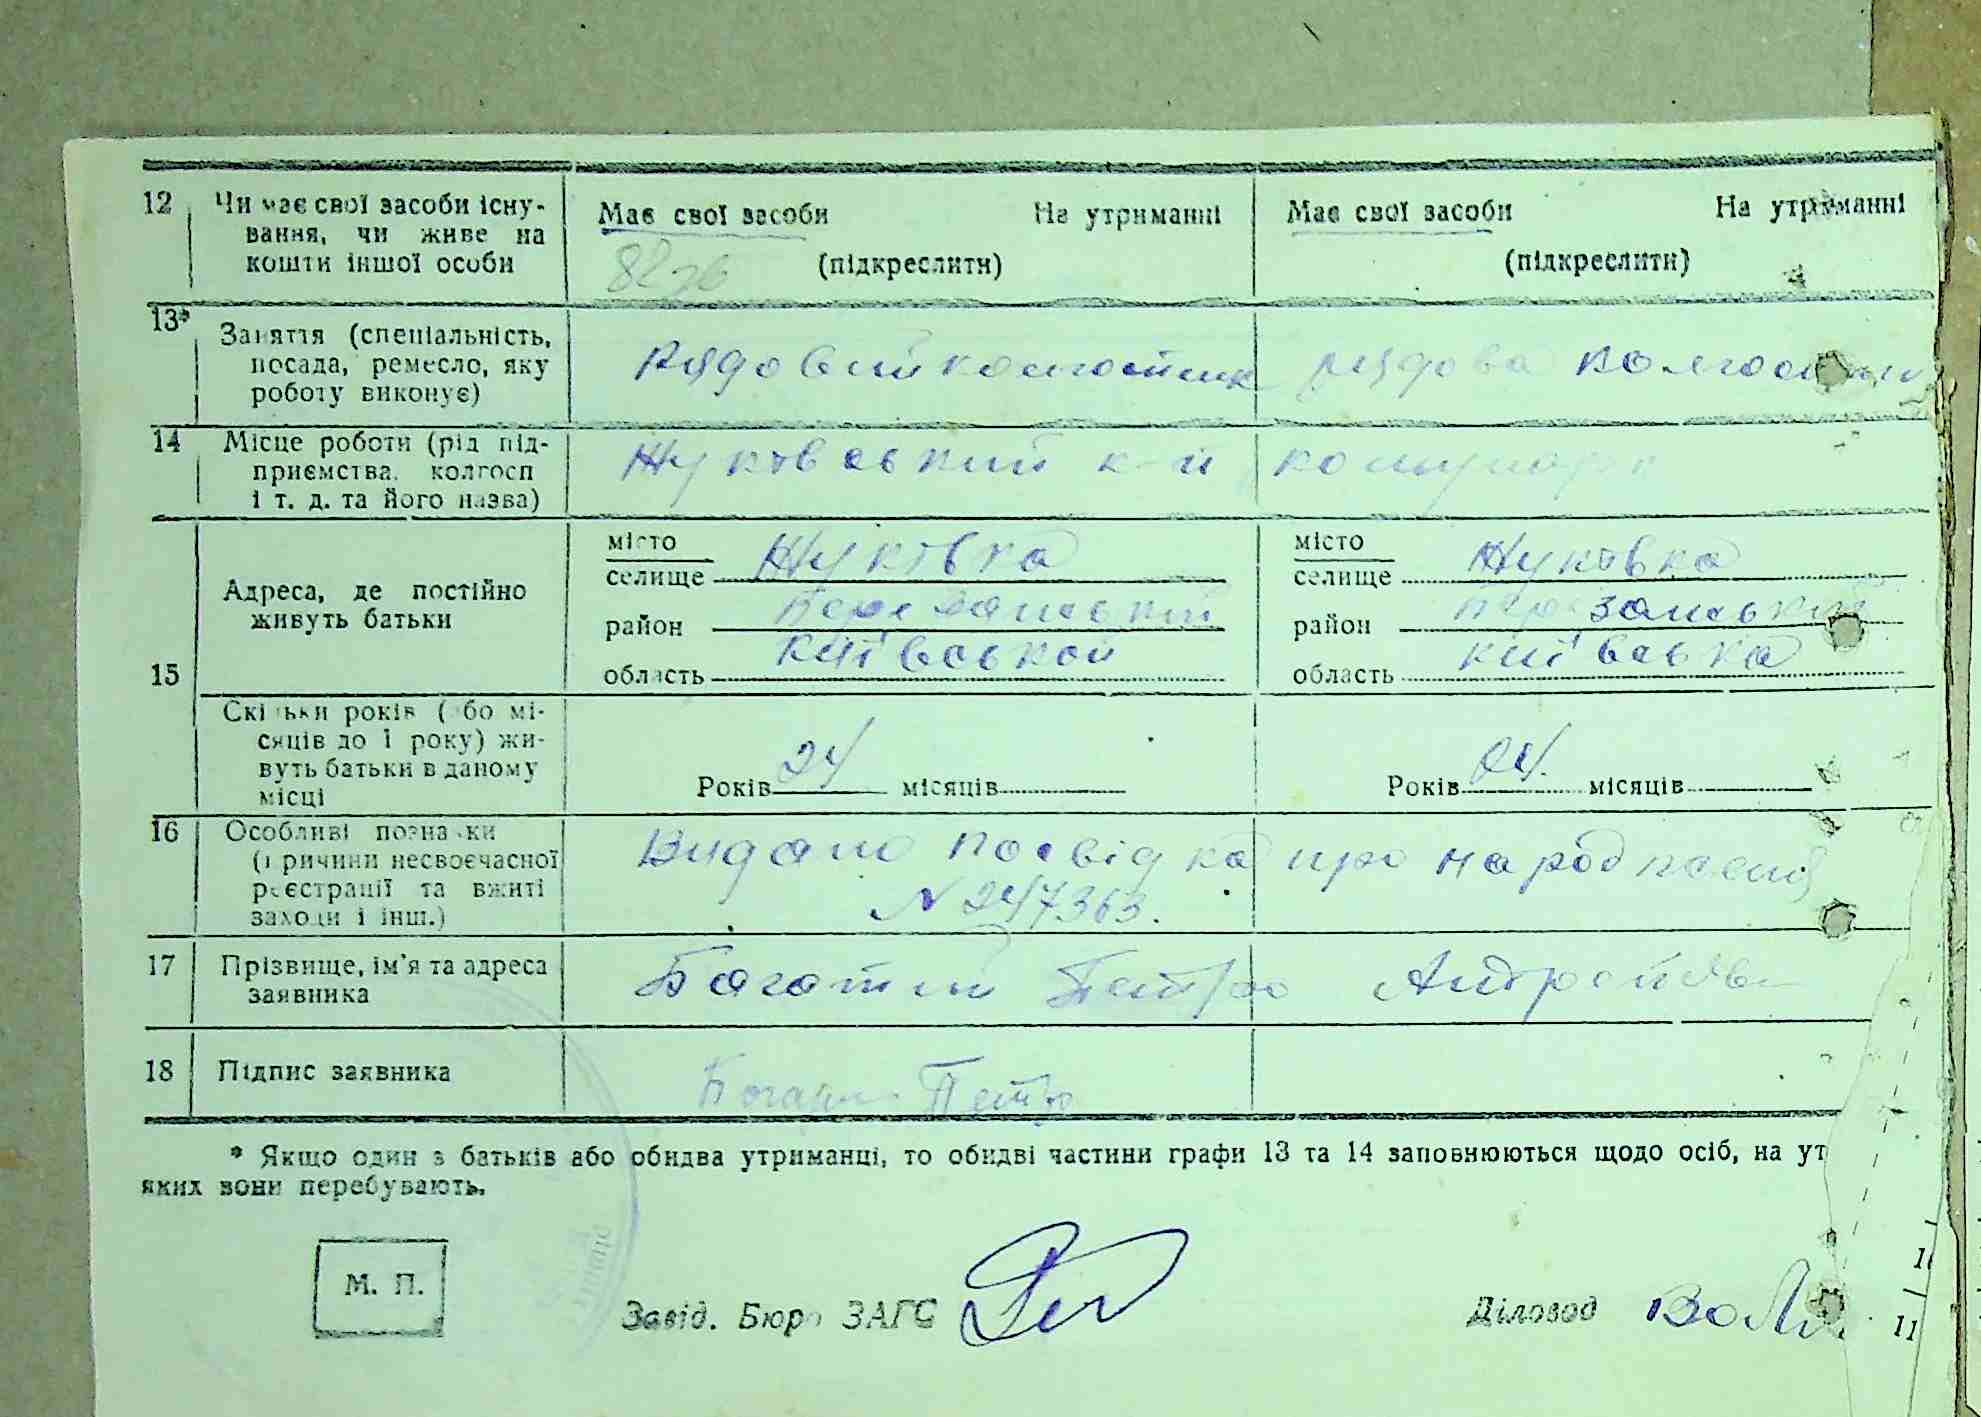 12 Чи має свої засоби існу-
вання, чи живе на
кошти іншої особи
Має свої засоби На утриманні
(підкреслити)
Має свої засоби На утриманні
(підкреслити)
13* Заняття (спеціальність,
посада, ремесло, яку
роботу виконує)
Рядовий колгоспник
рядова колгоспни
14 Місце роботи (рід під-
приємства, колгосп
і т. д. та його назва)
Жуковський к-п комунар
15 Адреса, де постійно
живуть батьки
місто
селище Жуковка
район
область Київської
місто
селище Жуковка
район
область київська
Скільки років (або мі-
сяців до 1 року) жи-
вуть батьки в даному
місці
Років 24 місяців
Років 24. місяців
16 Особливі познаки
(причини несвоєчасної
реєстрації та вжиті
заходи і інш.)
Видано посвідка про народженя
N 247363.
17 Прізвище, ім'я та адреса
заявника
Багатий Петро Андрейов
18 Підпис заявника
Петро
* Якщо один з батьків або обидва утриманці, то обидві частини графи 13 та 14 заповнюються щодо осіб, на ут
яких вони перебувають.
М. П.
Завід. Бюро ЗАГС
Діловод
11